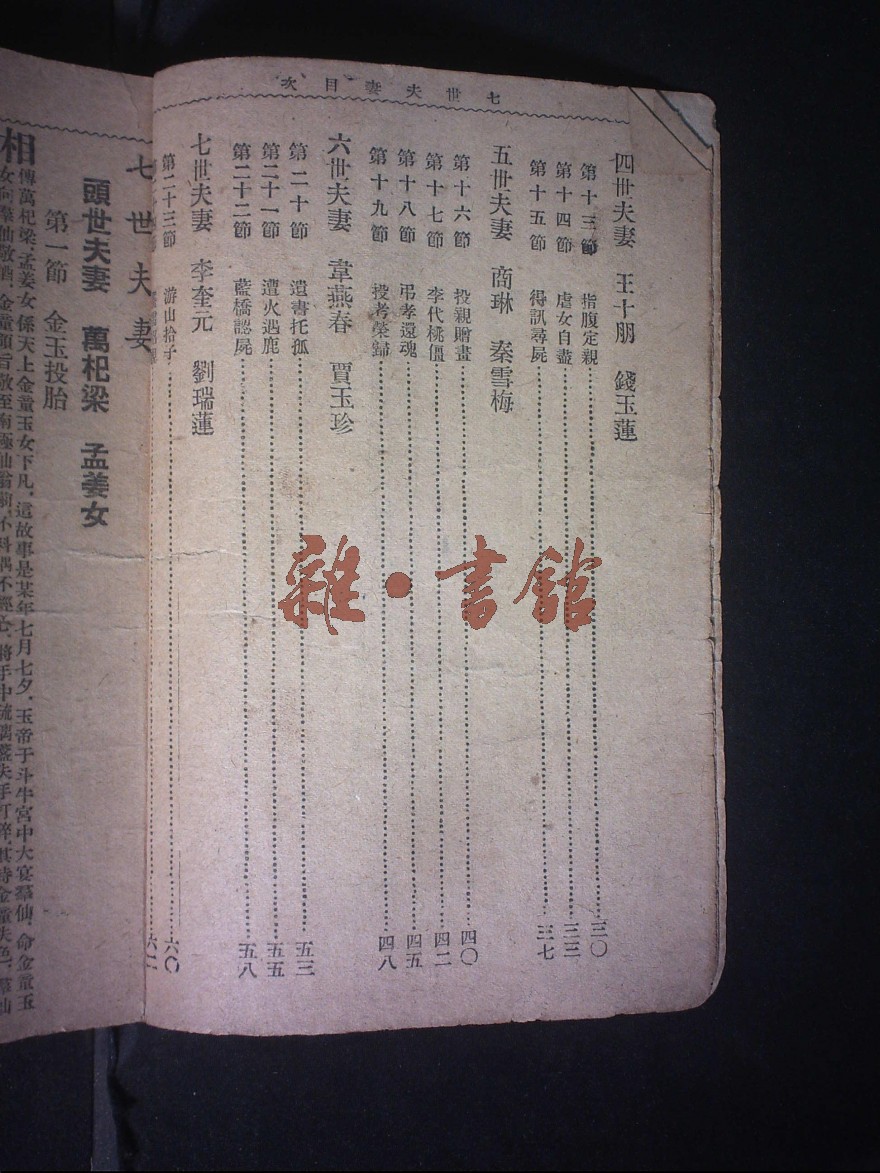 七世夫妻目次
四世夫妻 王十朋 錢玉蓮
第十三節 指腹定親 三〇
第十四節 虐女自盡 三三
第十五節 得訊尋屍 三七
五世夫妻 商琳 秦雪梅
第十六節 投親贈畫 四〇
第十七節 李代桃僵 四二
第十八節 弔孝還魂 四五
第十九節 投考榮歸 四八
六世夫妻 韋燕春 賈玉珍
第二十節 遺書托孤 五三
第二十一節 遭火遇鹿 五五
第二十二節 藍橋認屍 五八
七世夫妻 李奎元 劉瑞蓮
第二十三節 游山拾子 六〇
六二
七世夫妻
頭世夫妻 萬杞梁 孟姜女
第一節 金玉投胎
相傳萬杞梁、孟姜女係天上金童玉女下凡、這故事是某年七月七夕、玉帝于斗牛宮中大宴羣仙、命金童玉
女向羣仙敬酒、金童領旨敬至南極仙翁前、不料偶不經心、將手中琉璃盞失手打碎、其時金童失色、羣仙
雜·書館